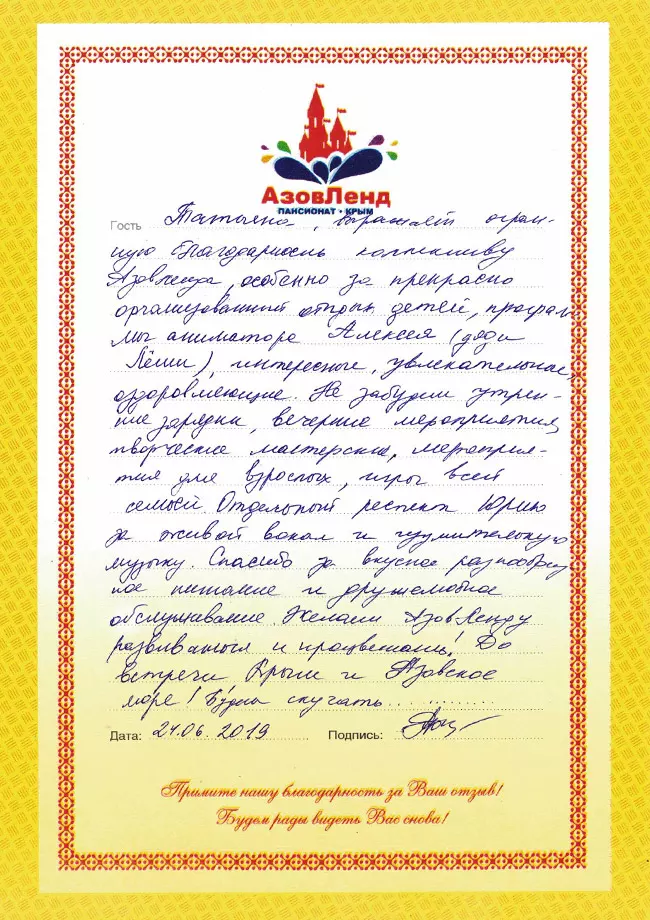 АзовЛенд
ПАНСИОНАТ • КРЫМ
Гость Татьяна, выражает огром-
ную благодарность коллективу
Азовленда, особенно за прекрасно
организованный отдых детей, програм
мы аниматора Алексея (дяди
Лёши), интересные, увлекательные,
оздоровляющие. Не забудем утрен-
ние зарядки, вечерние мероприятия,
творческие мастерские, мероприя-
тия для взрослых, игры всей
семьёй. Отдельный респект Юрию
за живой вокал и изумительную
музыку. Спасибо за вкусное разнообраз
ное питание и дружелюбное
обслуживание. Желаем АзовЛенду
развиваться и процветать! До
встречи Крым и Азовское
море! Будем скучать...
Дата: 24.06.2019 Подпись:
Примите нашу благодарность за Ваш отзыв!
Будем рады видеть Вас снова!